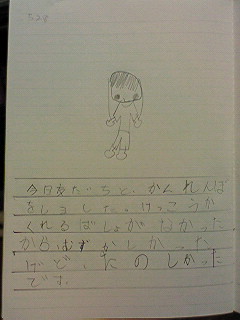 7.28
今日友だちと、かんれんぼ
をしました。けっこうか
くれるばしょがなかった
からむずかしかった
けど、たのしかった
です。